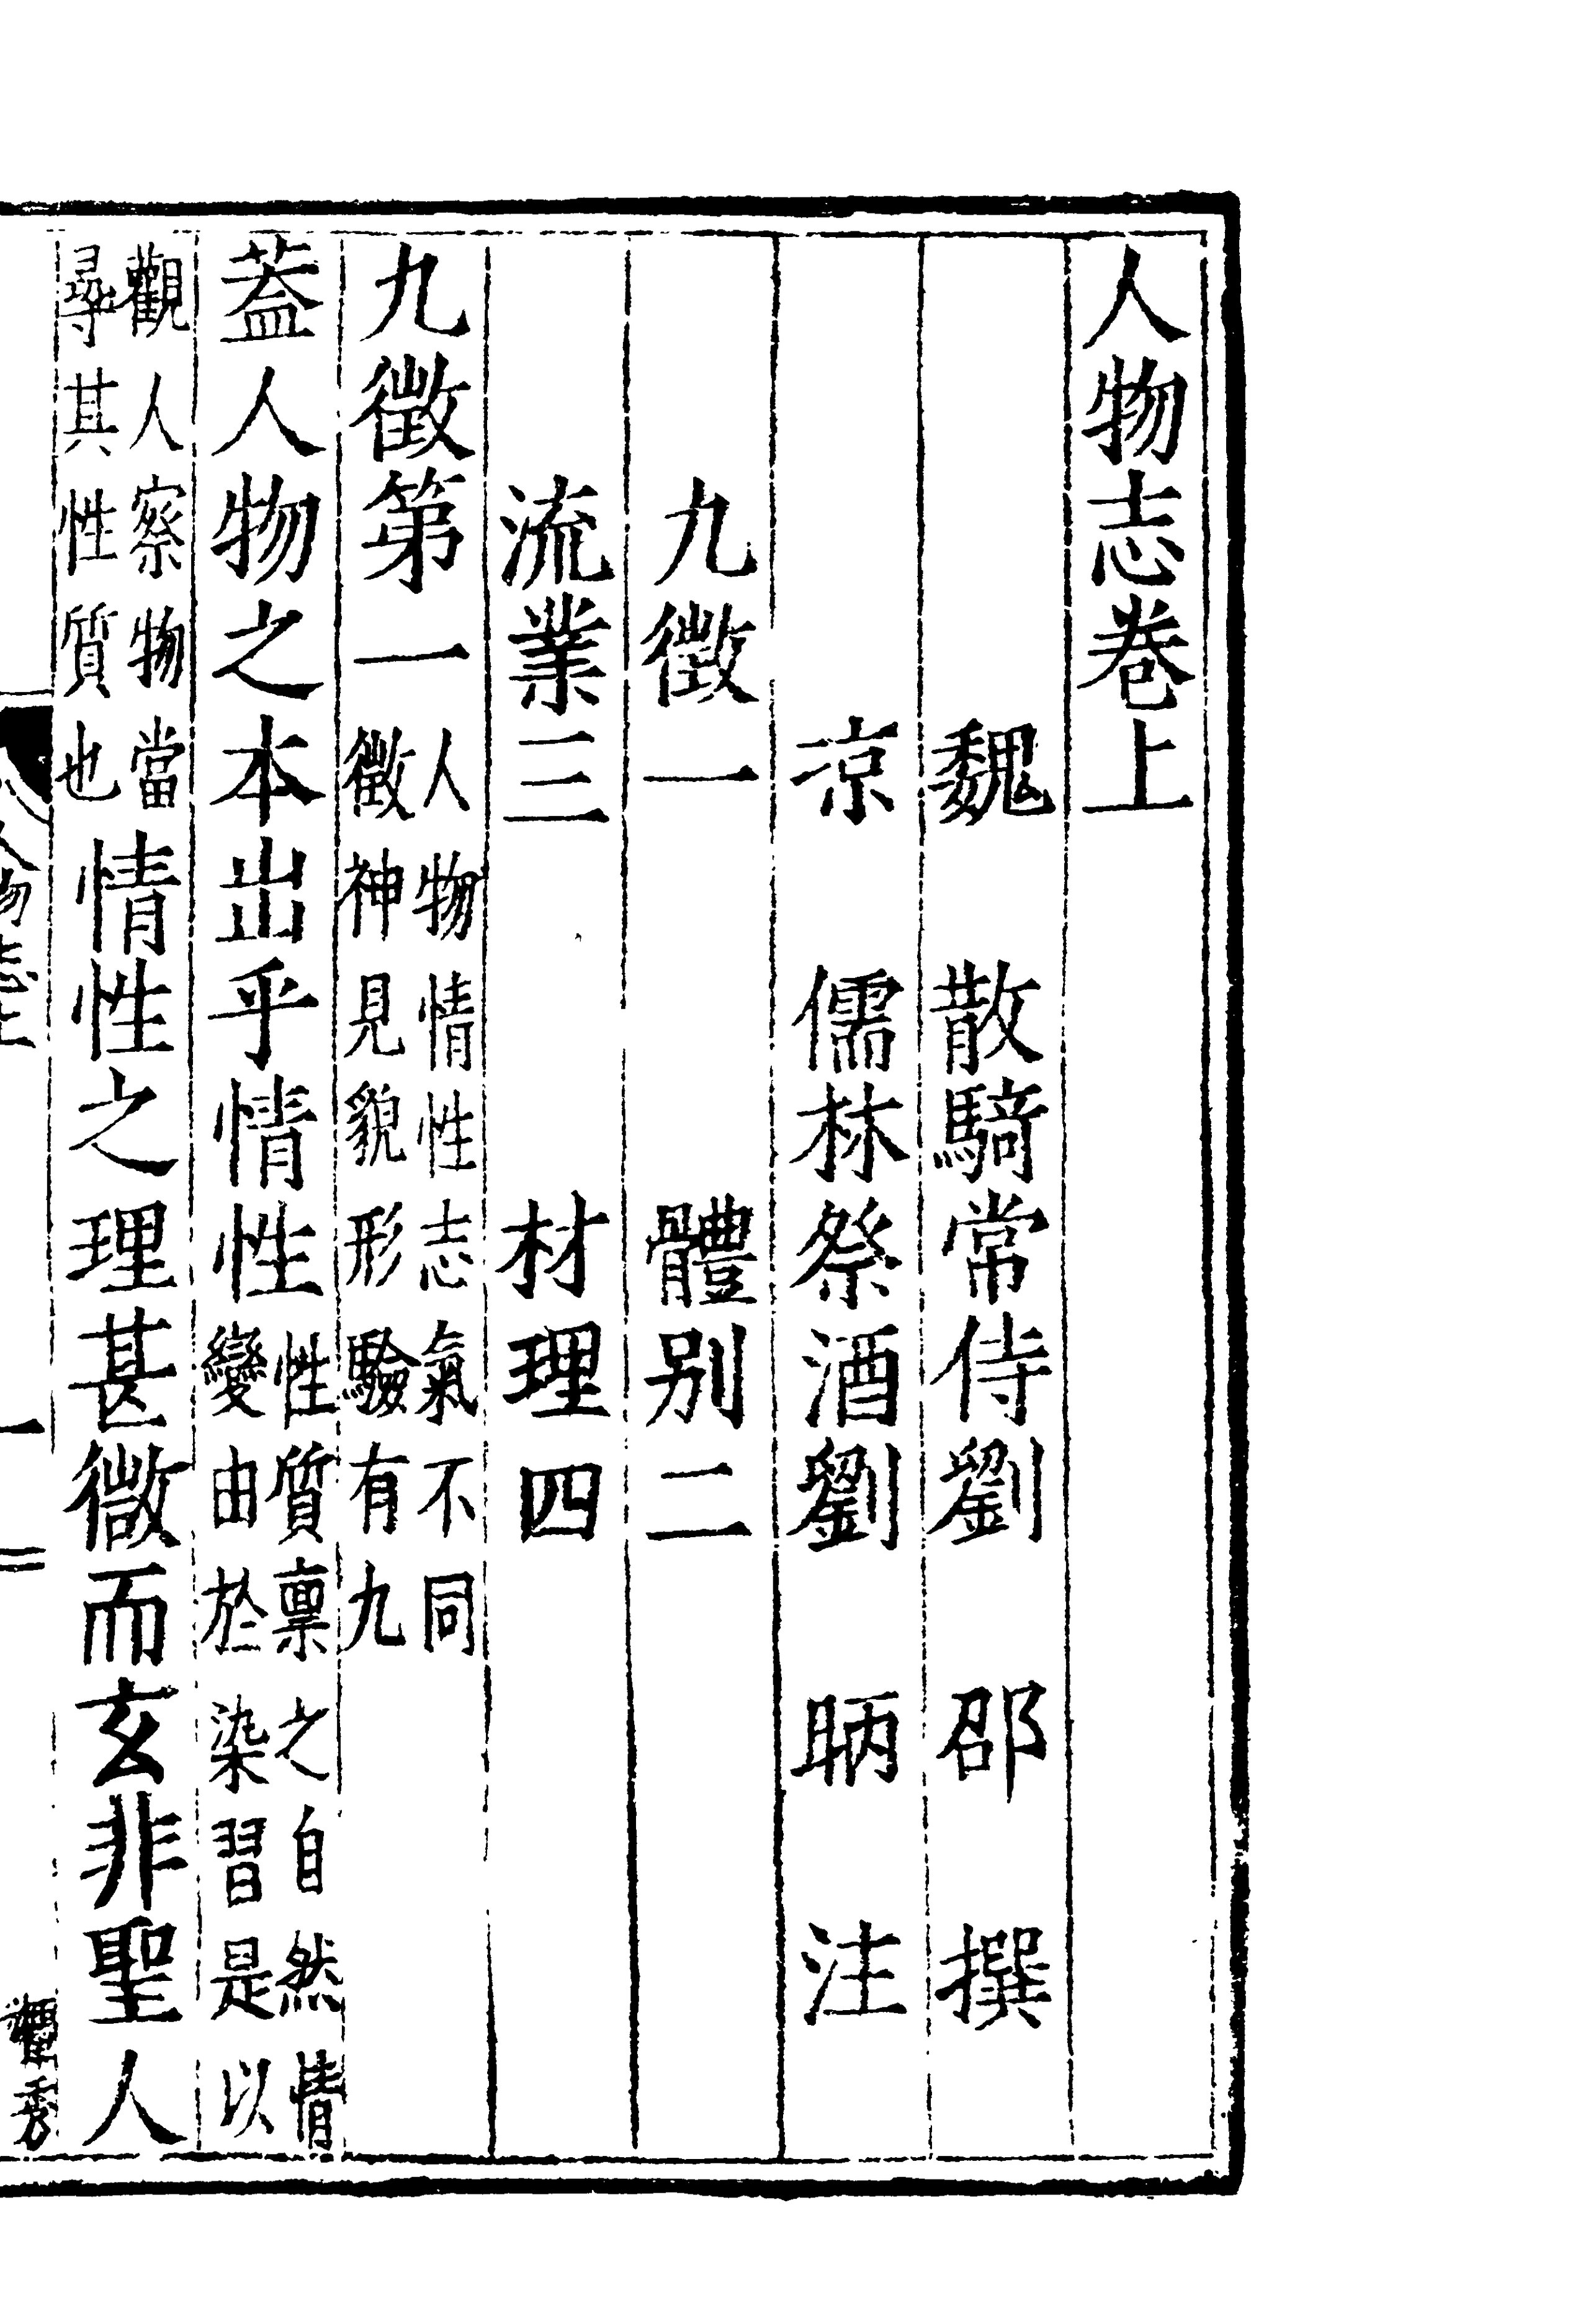 人物志卷上
魏　散騎常侍劉　邵　撰
凉　儒林祭酒劉　昞　注
九徵一　體别二
流業三　材理四
九徵第一人物情性志氣不同徵神見貌形驗有九
蓋人物之本出乎情性性質禀之自然情變由於染習是以
觀人察物當尋其性質也情性之理甚微而玄非聖人
人物志上
一